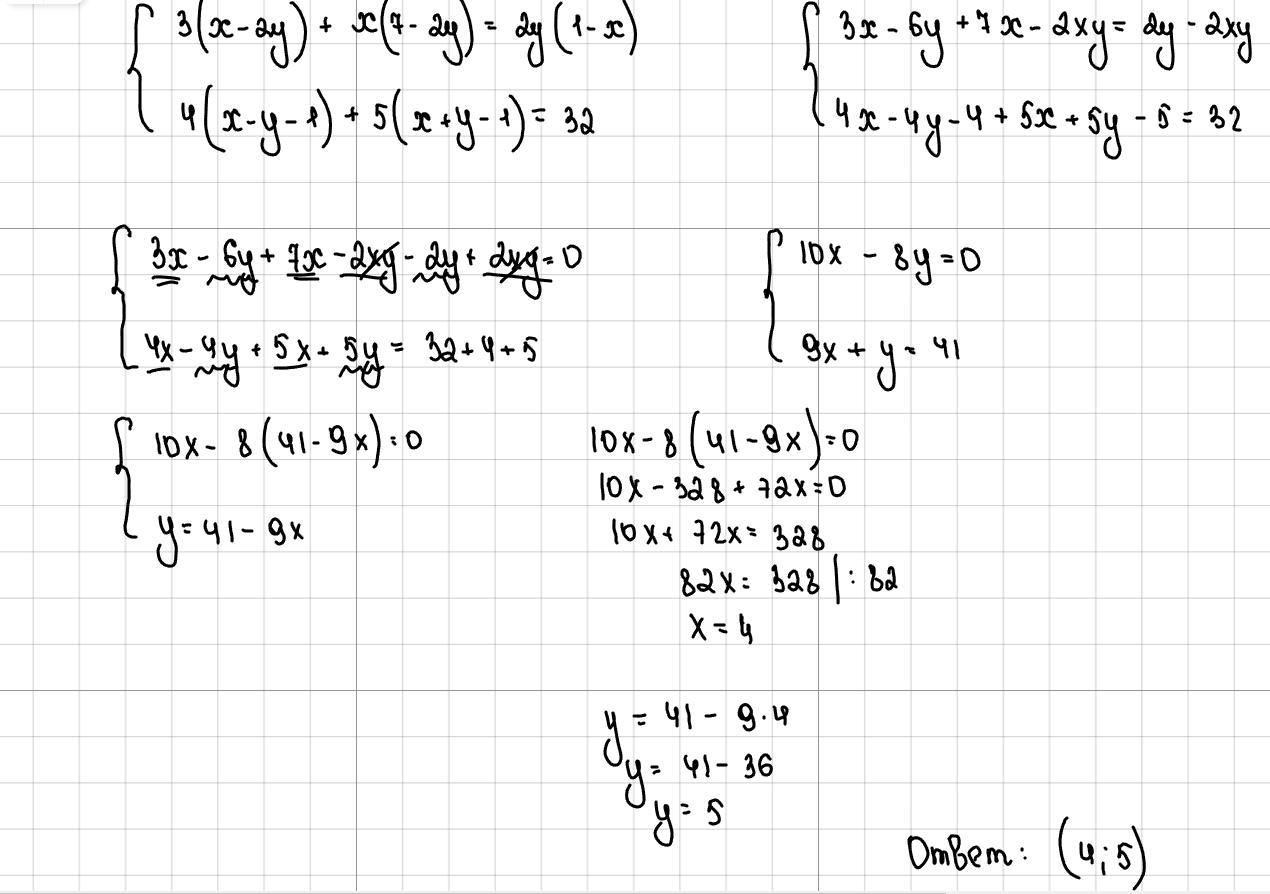 3(x-2y) + x(7-2y) = 2y(1-x)
4(x-y-1) + 5(x+y-1) = 32
3x - 6y + 7x - 2xy = 2y - 2xy
4x - 4y - 4 + 5x + 5y - 5 = 32
3x - 6y + 7x - 2xy - 2y + 2xy = 0
4x - 4y + 5x + 5y = 32+4+5
10x - 8y = 0
9x + y = 41
10x - 8(41-9x) = 0
y = 41 - 9x
10x - 8(41-9x) = 0
10x - 328 + 72x = 0
10x + 72x = 328
82x = 328 | : 82
x = 4
y = 41 - 9·4
y = 41 - 36
y = 5
Ответ: (4; 5)